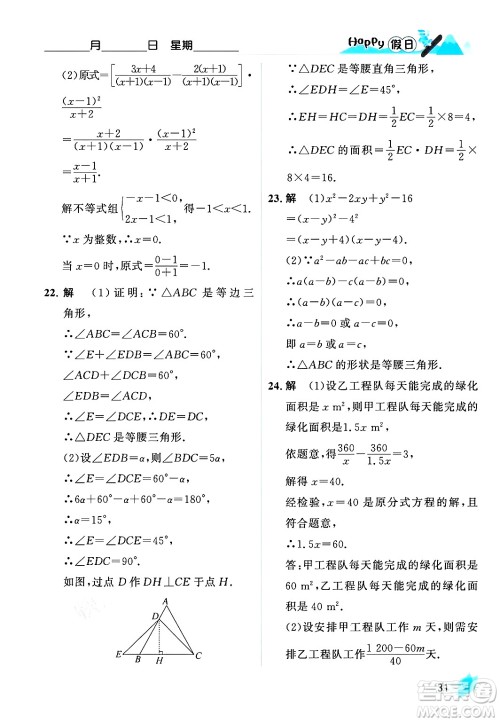 月 日 星期
Happy 假日
(2)原式=[3x+4/(x+1)(x-1) - 2(x+1)/(x+1)(x-1)]·
(x-1)²/x+2
=x+2/(x+1)(x-1)·(x-1)²/x+2
=x-1/x+1.
解不等式组{-x-1<0, 2x-1<0 得-1<x<1/2.
∵x为整数,∴x=0.
当x=0时,原式=0-1/0+1=-1.
22. 解 (1)证明:∵△ABC是等边三
角形,
∴∠ABC=∠ACB=60°.
∵∠E+∠EDB=∠ABC=60°,
∠ACD+∠DCB=60°,
∠EDB=∠ACD,∴∠E=∠DCE.
∴△DEC是等腰三角形.
(2)设∠EDB=α,则∠EDC=5α.
∴∠E=∠DCE=60°-α.
∴6α+60°-α+60°-α=180°.
∴α=15°,
∴∠E=∠DCE=45°,
∴∠EDC=90°.
如图,过点D作DH⊥CE于点H.
A
D
E B H C
∵△DEC是等腰直角三角形,
∴∠EDH=∠E=45°.
∴EH=HC=DH=1/2EC=1/2×8=4.
∴△DEC的面积=1/2EC·DH=1/2×
8×4=16.
23. 解 (1)x²-2xy+y²-16
=(x-y)²-4²
=(x-y+4)(x-y-4).
(2)∵a²-ab+ac-bc=0,
∴a(a-b)+c(a-b)=0,
∴(a-b)(a+c)=0,
∴a-b=0或a+c=0,
即a=b或a=-c(舍去).
∴△ABC的形状是等腰三角形.
24. 解 (1)设乙工程队每天能完成的绿化
面积是x m²,则甲工程队每天能完成的
绿化面积是1.5x m².
依题意,得360/x-360/1.5x=3,
解得x=40.
经检验,x=40是原分式方程的解,且
符合题意,
∴1.5x=60.
答:甲工程队每天能完成的绿化面积是
60 m²,乙工程队每天能完成的绿化面
积是40 m².
(2)设安排甲工程队工作m天,则需安
排乙工程队工作1200-60m/40天.
31